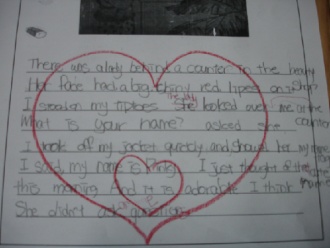 There was a lady behind a counter in the beauty shop
Her face had a big shiny red lipes on
I stood on my tiptoes The lady looked over me at the counter
What is your name? asked she
I took off my jacket quickly and showed her my
I said, my name is I just thought of the name
this morning And it is adorable I think
She didn't ask questions